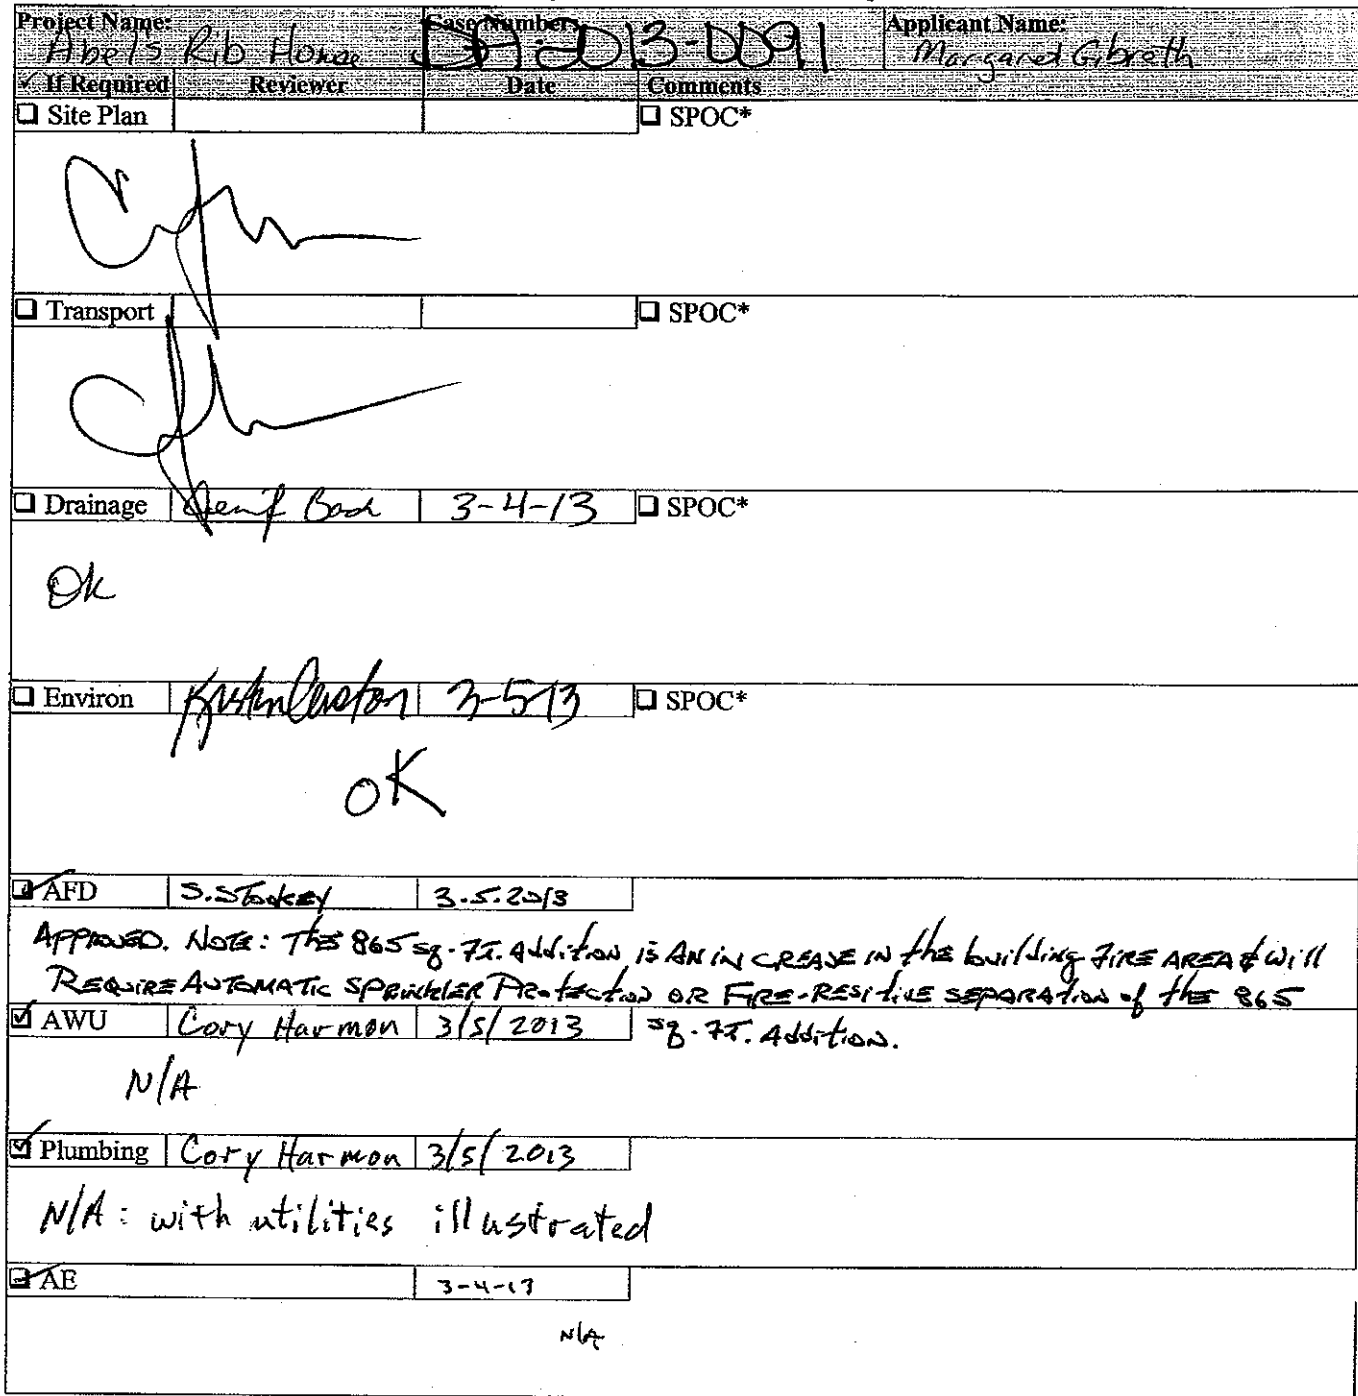 Project Name: Case Number: Applicant Name:
Abels Rib House DA-2013-0091 Margaret Gibreth
✓ If Required Reviewer Date Comments
☐ Site Plan ☐ SPOC*
☐ Transport ☐ SPOC*
☐ Drainage 3-4-13 ☐ SPOC*
Ok
☐ Environ 3-5-13 ☐ SPOC*
OK
☑ AFD 3.5.2013
APPROVED. NOTE: THE 865 sq. FT. Addition is AN INCREASE IN the building FIRE AREA & will
REQUIRE AUTOMATIC SPRINKLER Protection OR FIRE-RESITIVE SEPARATION of the 865
☑ AWU Cory Harmon 3/5/2013 sq. FT. Addition.
N/A
☑ Plumbing Cory Harmon 3/5/2013
N/A : with utilities illustrated
☑ AE 3-4-13
N/A